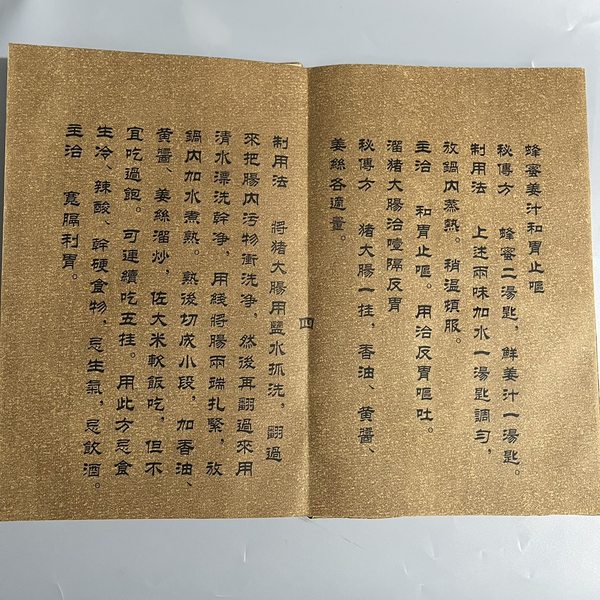 蜂蜜姜汁和胃止嘔
秘傳方 蜂蜜二湯匙，鮮姜汁一湯匙。
制用法 上述兩味加水一湯匙調勻，
放鍋內蒸熱。稍溫頓服。
主治 和胃止嘔。用治反胃嘔吐。
溜猪大腸治噎隔反胃
秘傳方 猪大腸一挂，香油、黄醬、
姜絲各適量。
四
制用法 將猪大腸用鹽水抓洗，翻過
來把腸內污物衝洗净，然後再翻過來用
清水漂洗幹净，用綫將腸兩端扎緊，放
鍋內加水煮熟。熟後切成小段，加香油、
黄醬、姜絲溜炒，佐大米軟飯吃，但不
宜吃過飽。可連續吃五挂。用此方忌食
生冷、辣酸、幹硬食物，忌生氣，忌飲酒。
主治 寬膈利胃。